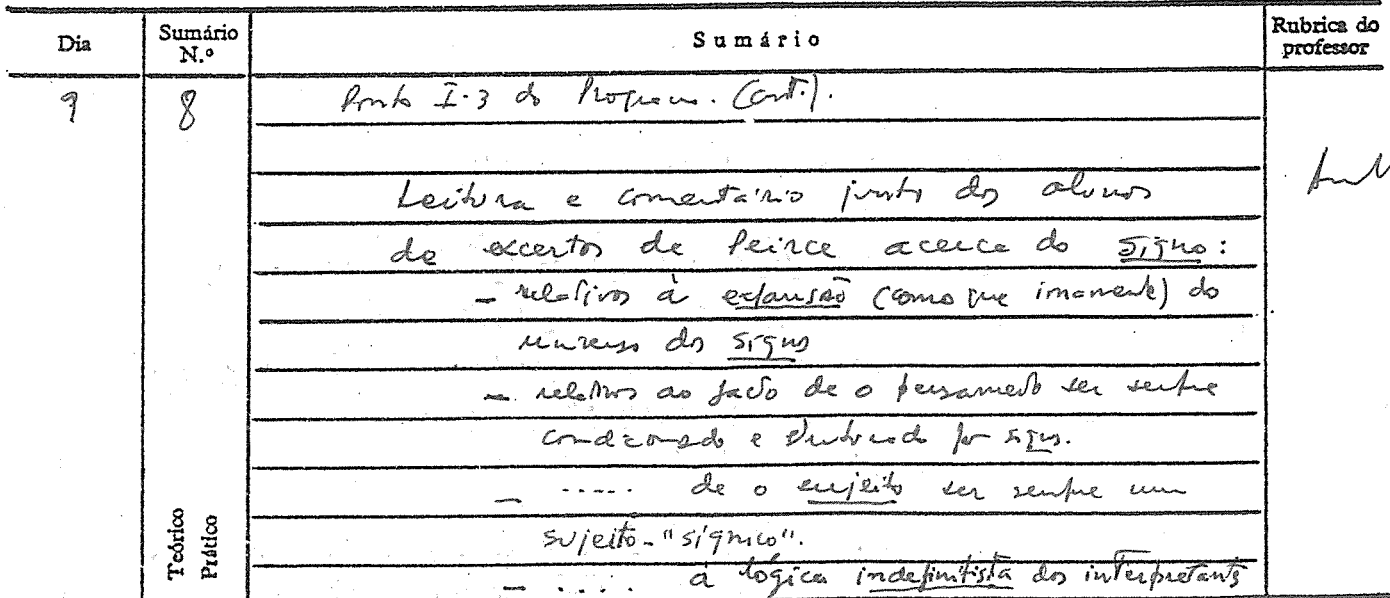 Dia Sumário N.º Sumário Rubrica do professor
9 8 Ponto I-3 do Programa. (Cont.).
Leitura e comentário junto dos alunos
de excertos de Peirce acerca do signo:
- relativos à expansão (como que imanente) do
universo dos signos
- relativos ao facto de o pensamento ser sempre
condicionado e estruturado por signos.
- ..... de o sujeito ser sempre um
sujeito-"sígnico".
- ..... à lógica indefinitista dos interpretants
Teórico
Prático